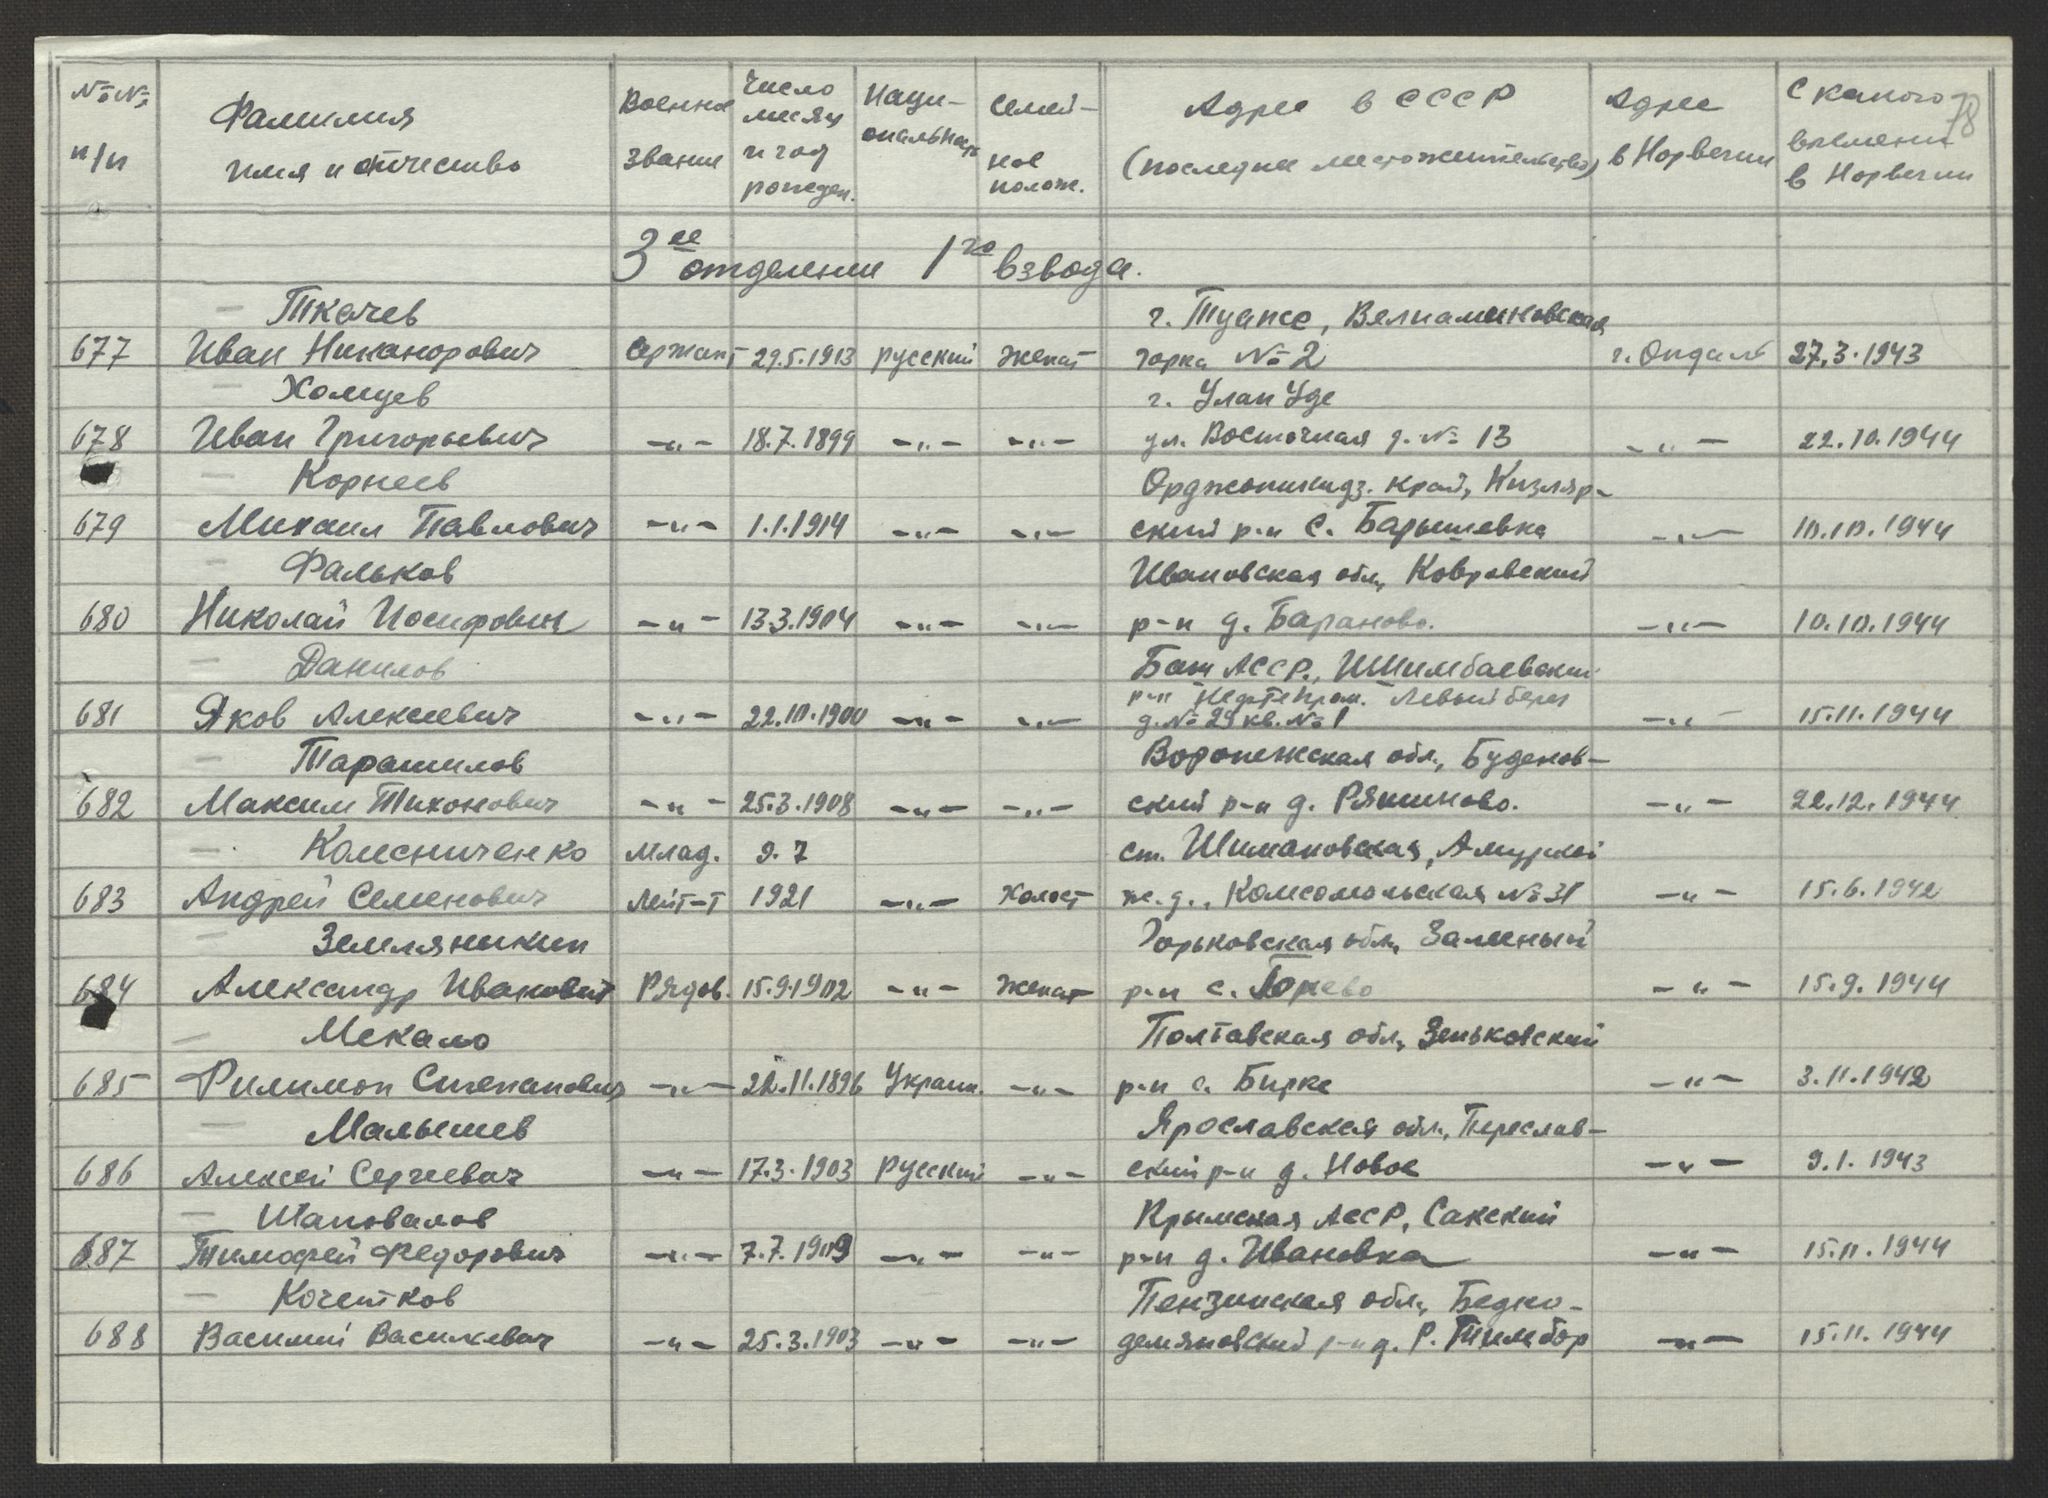 № № п/п | Фамилия имя и отчество | Военное звание | Число месяц и год рожден. | Наци-ональность | Семей-ное полож. | Адрес в СССР (последнее местожительство) | Адрес в Норвегии | С какого времени в Норвегии
78
3ее отделение 1го взвода.
Ткачев | г. Туапсе, Вельяминовская
677 | Иван Никанорович | Сержант | 29.5.1913 | русский | женат | горка № 2 | г. Опдаль | 27.3.1943
Хомцев | г. Улан Уде
678 | Иван Григорьевич | -"- | 18.7.1899 | -"- | -"- | ул. Восточная д. № 13 | -"- | 22.10.1944
Корнеев | Орджоникидз. край, Кизляр-
679 | Михаил Павлович | -"- | 1.1.1914 | -"- | -"- | ский р-н с. Барышевка | -"- | 10.10.1944
Фальков | Ивановская обл., Ковровский
680 | Николай Иосифович | -"- | 13.3.1904 | -"- | -"- | р-н д. Бараново. | -"- | 10.10.1944
Данилов | Баш АССР., Ишимбаевский
р-н "Нефтепром." Левый берег
681 | Яков Алексеевич | -"- | 22.10.1900 | -"- | -"- | д. № 29 кв. № 1 | -"- | 15.11.1944
Тарашилов | Воронежская обл., Буденов-
682 | Максим Тихонович | -"- | 25.3.1908 | -"- | -"- | ский р-н д. | -"- | 22.12.1944
Колесниченко | Млад. | 9.7 | ст. Шимановская, Амурской
683 | Андрей Семенович | Лейт-т | 1921 | -"- | Холост | ж.д., Комсомольская № 31 | -"- | 15.6.1942
Земляникин | Горьковская обл.,
684 | Александр Иванович | Рядов. | 15.9.1902 | -"- | женат | р-н с. | -"- | 15.9.1944
Мекало | Полтавская обл., Зеньковский
685 | Филимон Степанович | -"- | 22.11.1896 | Украин. | -"- | р-н с. Бирке | -"- | 3.11.1942
Малышев | Ярославская обл., Переслав-
686 | Алексей Сергеевич | -"- | 17.3.1903 | Русский | -"- | ский р-н д. Новое | -"- | 9.1.1943
Шаповалов | Крымская АССР, Сакский
687 | Тимофей Федорович | -"- | 7.7.1909 | -"- | -"- | р-н д. Ивановка | -"- | 15.11.1944
Кочетков | Пензинская обл., Бедно-
688 | Василий Васильевич | -"- | 25.3.1903 | -"- | -"- | демяновский р-н д. Р. Тимбор | -"- | 15.11.1944